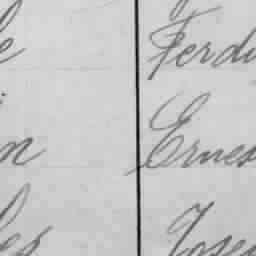 e Ferdi
n Ernes
les Josep